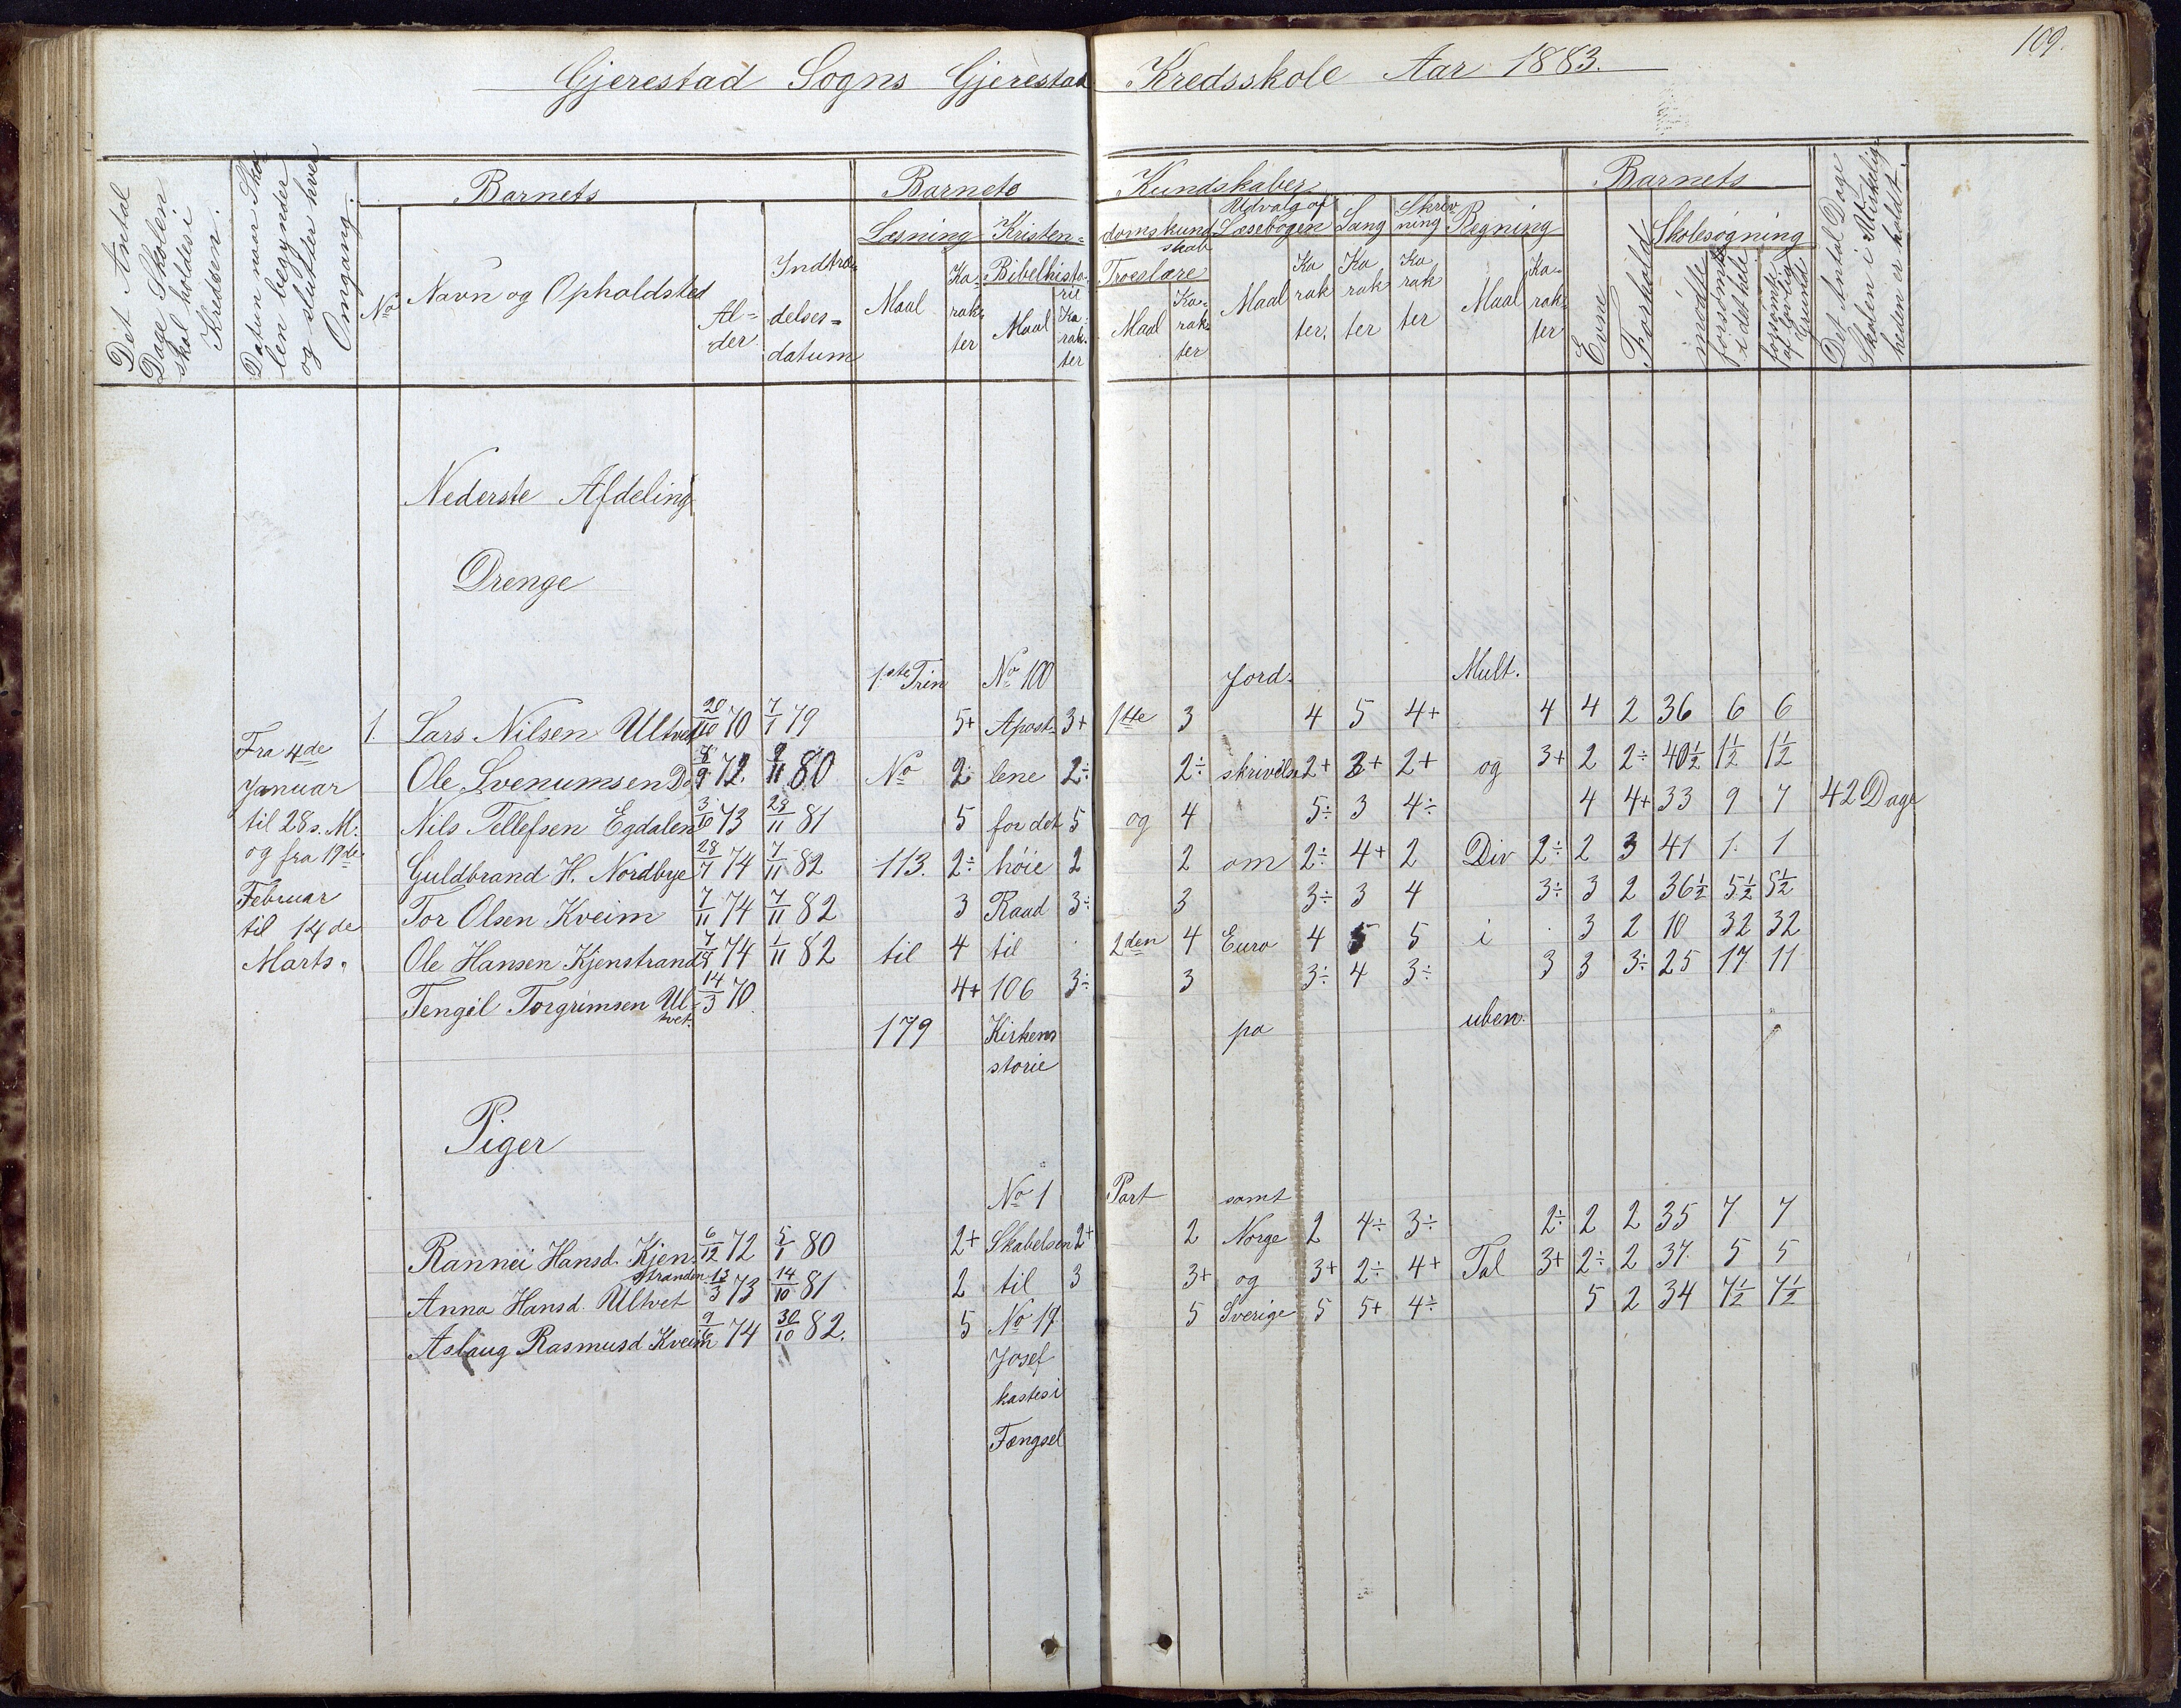 109.
Gjerestad Sogns Gjerestad Kredsskole Aar 1883.
Det Antal Dage Skolen skal holdes i Kredsen.
Datum naar Skolen begynder og slutter hver Omgang.
Barnets
No
Navn og Opholdsted
Al=der.
Indtrædelses=datum
Barnets Kundskaber
Læsning
Maal
Karakter
Kristen=domskundskab
Bibelhistorie
Maal
Karakter
Troeslære
Maal
Karakter
Udvalg af Læsebogen
Maal
Karakter.
Sang
Karakter
Skrivning
Karakter
Regning
Maal
Karakter
Barnets
Evne
Forhold
Skolesøgning
mødte
forsømte i det hele
forsømt af lovlig Grund
Det Antal Dage Skolen i Virkeligheden er holdt.
Nederste Afdeling
Drenge
1ste Trin No 100 Jord= Mult.
1. Lars Nilsen Ultvet 20/10 70 7/1 79 5+ Apost= 3+ 1ste 3 4 5 4+ 4 4 2 36 6 6
Fra 4de
Ole Svenumsen Do 8/9 72. 9/11 80 No 2÷ lene 2÷ 2÷ skrivelse 2+ 3+ 2+ og 3+ 2 2÷ 40½ 1½ 1½
Januar
Nils Tellefsen Egdalen 3/10 73 28/11 81 5 for det 5 og 4 5÷ 3 4÷ 4 4+ 33 9 7 42 Dage
til 28 s. M.
og fra 19de
Guldbrand H. Nordbye 28/7 74 7/11 82 113. 2÷ høie 2 2 om 2÷ 4+ 2 Div 2÷ 2 3 41 1. 1
Februar
Tor Olsen Kveim 7/11 74 7/11 82 3 Raad 3÷ 3 3÷ 3 4 3÷ 3 2 36½ 5½ 5½
til 14de
Ole Hansen Kjenstrand 7/8 74 1/11 82 til 4 til 2den 4 Euro 4 5 5 i 3 2 10 32 32
Marts.
Tengel Torgrimsen Ul= 14/3 70. 4+ 106 3÷ 3 3÷ 4 3÷ 3 3 3÷ 25 17 11
tvet.
179 Kirkens pa uben.
storie
Piger
No 1 Part samt
Rannei Hansd. Kjen= 6/12 72 5/1 80 2+ Skabelsen 2+ 2 Norge 2 4÷ 3÷ 2÷ 2 2 35 7 7
stranden
Anna Hansd. Ultvet 13/3 73 14/10 81 2 til 3 3+ og 3+ 2÷ 4+ Tal 3+ 2÷ 2 37. 5 5
Aslaug Rasmusd Kveim 9/6 74 30/10 82. 5 No 17 5 Sverige 5 5+ 4÷ 5 2 34 7½ 7½
Josef
kastes i
Fængsel